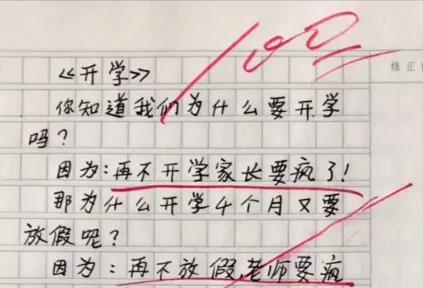 100
修正
《开学》
你知道我们为什么要开学
吗？
因为：再不开学家长要疯了！
那为什么开学4个月又要
放假呢？
因为：再不放假，老师要疯